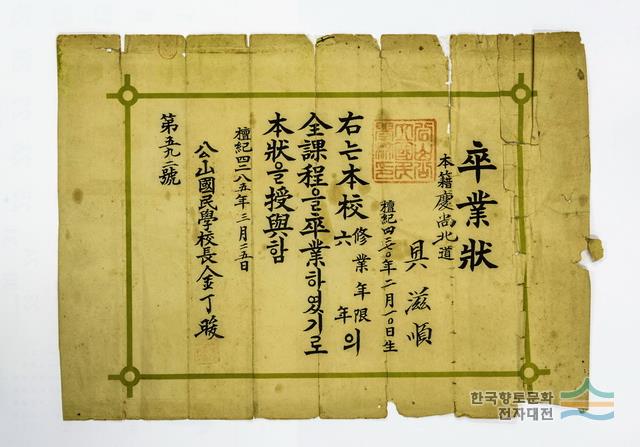 卒業狀
本籍慶尚北道
具滋順
檀紀四二七〇年二月一〇日生
右는本校修業年限六年의
全課程을卒業하였기로
本狀을授與함
檀紀四二八五年三月二五日
公山國民學校長金丁晙
第五九二號
한국향토문화
전자대전